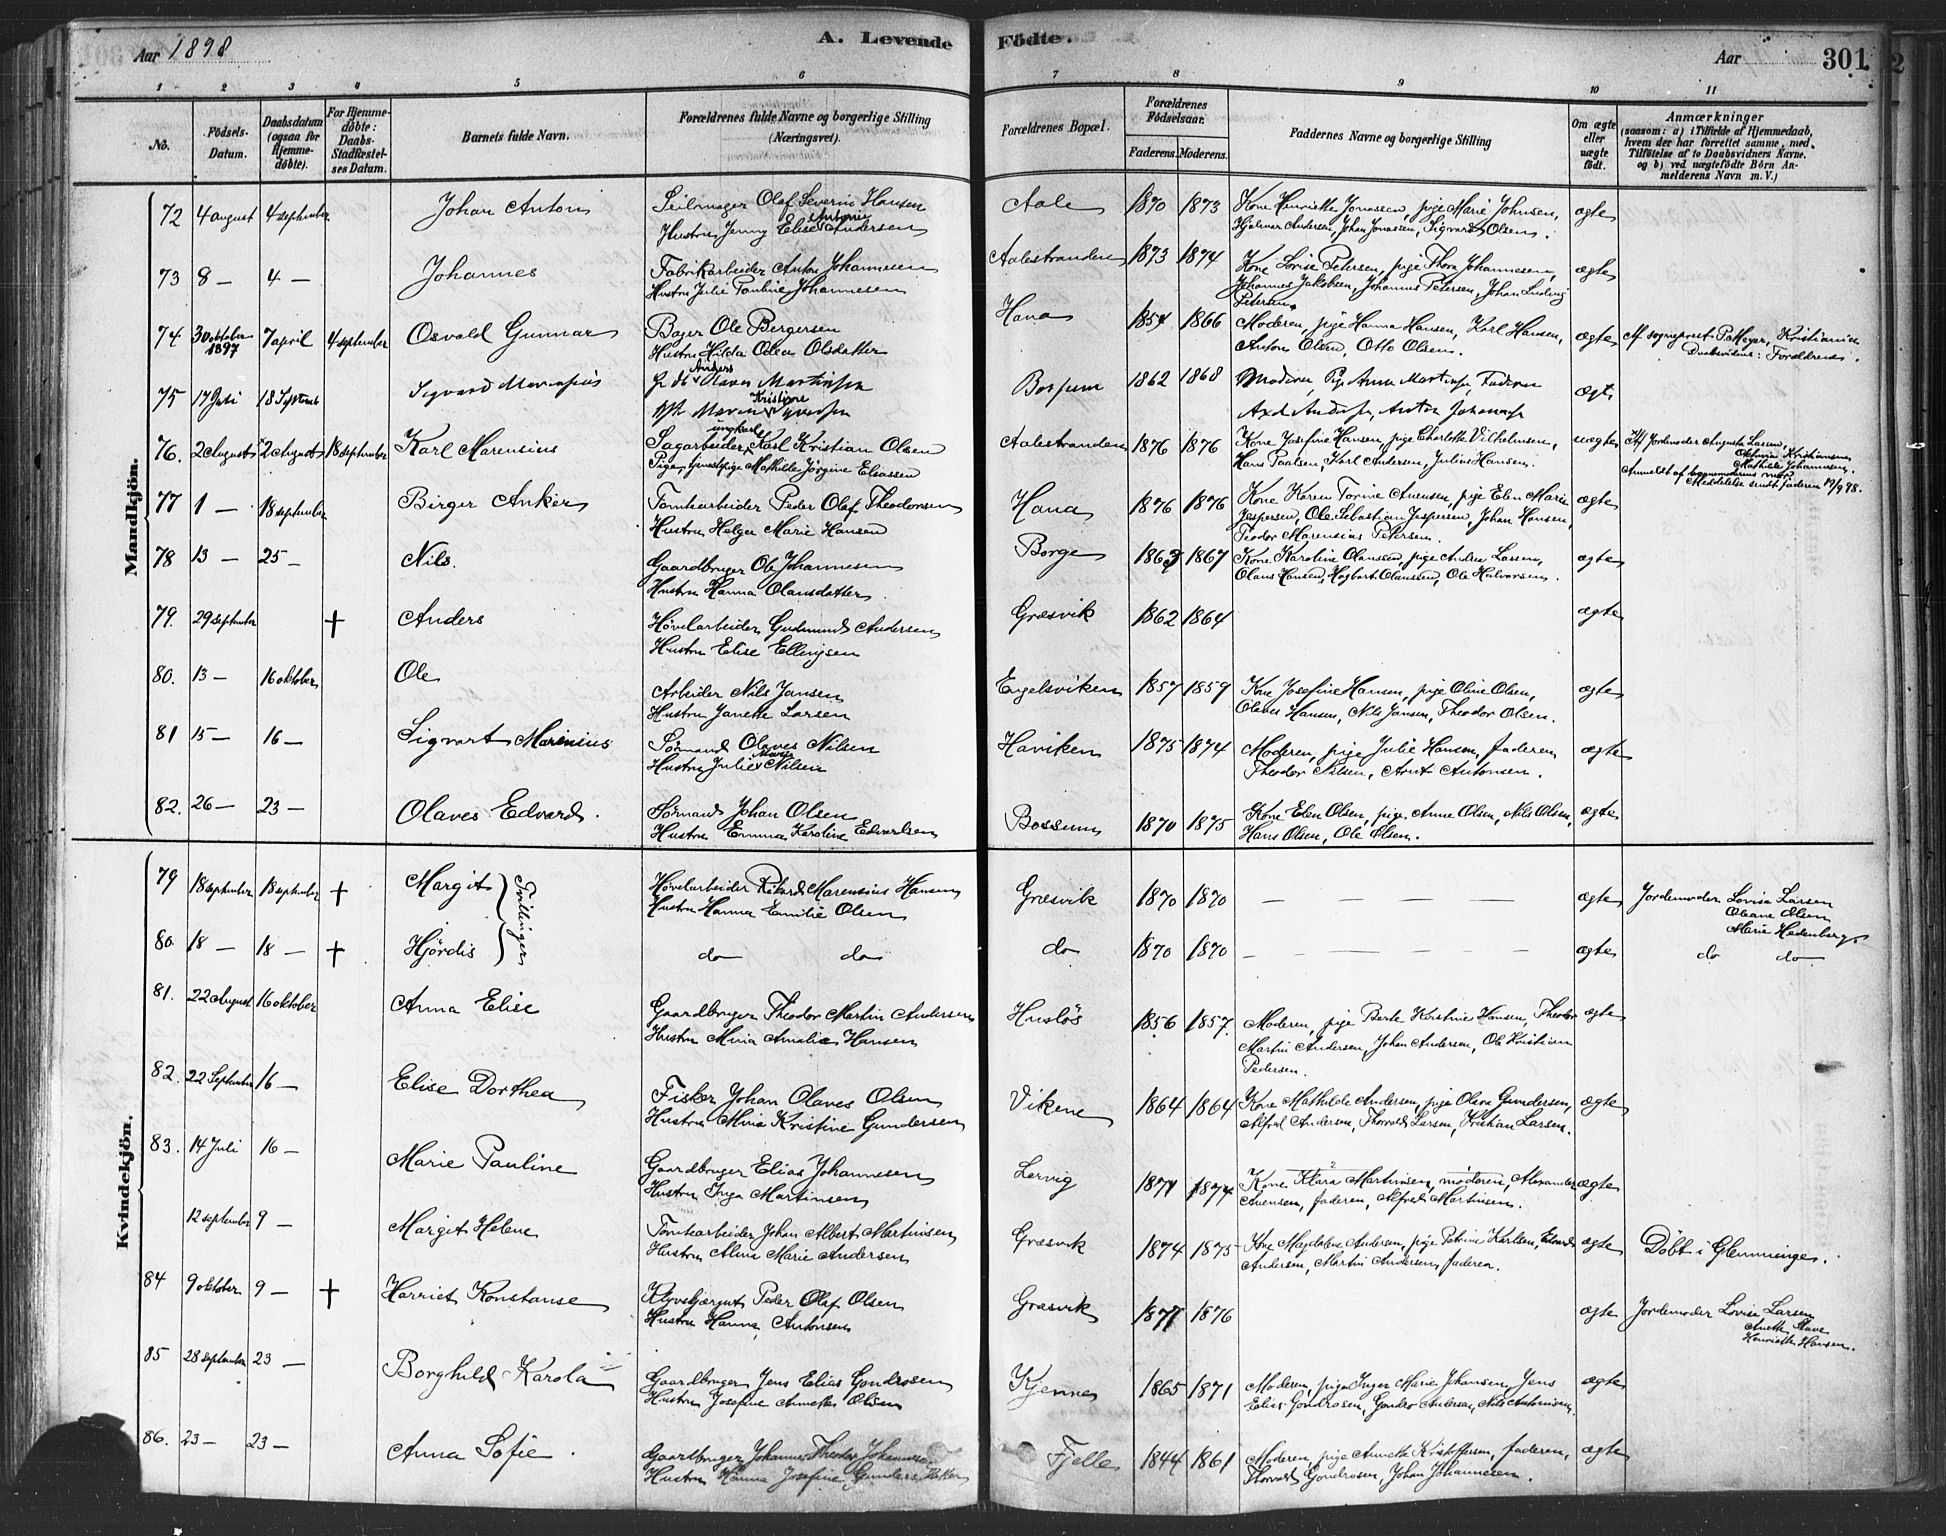 Aar 1898
A. Levende
Födte.
Aar
301
1 2 3 4 5 6 7 8 9 10 11
No.
Födsels-
Datum.
Daabsdatum
(ogsaa for
Hjemme-
döbte).
For Hjemme-
döbte:
Daabs-
Stadfæstel-
ses Datum.
Barnets fulde Navn.
Forældrenes fulde Navne og borgerlige Stilling
(Næringsvei).
Forældrenes Bopæl.
Forældrenes
Födselsaar.
Faderens. Moderens.
Faddernes Navne og borgerlige Stilling
Om ægte
eller
uægte
födt.
Anmærkninger
(saasom: a) i Tilfælde af Hjemmedaab,
hvem der har forrettet samme, med
Tilföielse af to Daabsvidners Navne.
og b) ved uægtefödte Börn An-
melderens Navn m. V.)
Mandkjön.
72 4 august 4 september Johan Anton Seilmager Olaf Severin Hansen Aale 1870 1873 Kone Henriette Jonassen, pige Marie Johnsen, ægte
Antonie
Hustru Jenny Elise Andersen Hjalmar Andersen, Johan Jonassen, Sigvard Olsen.
73 8 — 4 — Johannes Fabrikarbeider Anton Johannesen Aalestranden 1873 1874 Kone Lovise Petersen, pige Thora Johannesen, ægte
Hustru Julie Pauline Johannesen Johannes Jakobsen, Johannes Petersen, Johan Ludvig
Petersen
74 30 oktober 1897 7 april 4 september Osvald Gunnar Bager Ole Bergersen Hana 1854 1866 Moderen, pige Hanna Hansen, Karl Hansen, ægte Af sognepræst P. Meyer, Kristiania
Hustru Hilda Odea Olsdatter Anton Olsen, Otto Olsen. Daabsvidne: Forældrene.
75 17 Juli 18 Septemb Sigvard Mariasius Gdb Anders Olaves Martinsen Bossum 1862 1868 Moderen, Pige Anna Martinsen, Faderen ægte
Kristine
Hst Maren Iversen Axel Andersen, Anton Johansen
76. 2 August 2 August 18 september Karl Marensius ungkarl
Sagarbeider, Karl Kristian Olsen Aalestranden 1876 1876 Kone Josefine Hansen, pige Charlotte Vilhelmsen, uægte Af Jordemoder Augusta Larsen,
Pige, Mathilde Jörgine Eliassen Hans Paulsen, Karl Andersen, Julius Hansen. Kristiansen
Mathilde Johannesen.
Anmeldt af
Meddelelse sendt faderen 19/9 98.
77 1 — 18 september Birger Anker Tomtearbeider Peder Olaf Theodorsen Hana 1876 1876 Kone Karen Torine Arensen, pige Elen Marie ægte
Hustru Helga Marie Hansen Jespersen, Ole Sebastian Jespersen, Johan Hansen,
Teodor Marensius Petersen.
78 13 — 25 — Nils. Gaardbruger Ole Johannesen Borge 1863 1867 Kone Karoline Olaussen, pige Andrea Larsen, ægte
Hustru Hanna Olausdatter. Olaus Hansen, Hagbart Olaussen, Ole Halvorsen.
79. 29 september † Anders Hövelarbeider Gudmund Andersen Græsvik 1862 1864 ægte
Hustru Elise Ellingsen
80. 13 — 16 oktober Ole Arbeider Nils Jansen Engelsviken 1857 1859 Kone Josefine Hansen, pige Oline Olsen, ægte
Hustru Janette Larsen Olaves Hansen, Nils Jansen, Theodor Olsen.
81 15 — 16 — Sigvart Marinius Sömand Olaves Nilsen Haviken 1875 1874 Moderen, pige Julie Hansen, faderen ægte
Marie
Hustru Julie Nilsen Theodor Nilsen, Arnt Antonsen.
82. 26 — 23 — Olaves Edvard. Sömand Johan Olsen Bossum 1870 1875 Kone Elen Olsen, pige Anne Olsen, Nils Olsen, ægte
Hustru Emma Karoline Edvardsen Hans Olsen, Ole Olsen.
Kvindekjön.
79 18 september 18 september † Margit Tvillinger Hövelarbeider Rikard Marensius Hansen Græsvik 1870 1870 — — — — — ægte Jordemoder Lovise Larsen
Hustru Hanna Emilie Olsen Oleane Olsen
Marie Hedenberg.
80. 18 — 18 — † Hjördis do do do 1870 1870 — — — — — ægte do do
81. 22 August 16 oktober Anna Elise Gaardbruger Theodor Martin Andersen Huslös 1856 1857 Moderen, pige Berte Kristine Hansen, Theodor ægte
Hustru Mina Amalie Hansen Martin Andersen, Johan Andersen, Ole Kristian
Pedersen.
82. 22 September 16 — Elise Dorthea Fisker Johan Olaves Olsen Vikene 1864 1864 Kone Mathilde Andersen, pige Olava Gundersen, ægte
Hustru Mina Kristine Gundersen Alfred Andersen, Thorvald Larsen, Kristian Larsen.
83. 14 Juli 16 — Marie Pauline Gaardbruger Elias Johannesen Lervig 1871 1874 Kone Klara Martinsen, moderen, Alexander ægte
Hustru Inga Martinsen Arensen, faderen, Alfred Martinsen.
12 september 9 — Margit Helene Tomtearbeider Johan Albert Martinsen Græsvik 1874 1875 Kone Magdalene Andersen, pige Petrine Karlsen, Edvard ægte Döbt i Glemminge.
Hustru Alma Marie Andersen Andersen, Martin Andersen, faderen.
84 9 oktober 9 — † Harriet Konstanse Klyvskjærgut Peder Olaf Olsen Græsvik 1877 1876 ægte Jordemoder Lovise Larsen
Hustru Hanna Antonsen Anette
Henriette Hansen.
85 28 september 23 — Borghild Karola Gaardbruger Jens Elias Gondrosen Kjennes 1865 1871 Moderen, pige Inger Marie Johansen, Jens ægte
Hustru Josefine Annette Olsen Elias Gondrosen, Gunder Andersen, Nils Antonisen.
86. 23 — 23 — Anna Sofie. Gaardbruger Johannes Theodor Johannesen Fjelle 1844 1861 Moderen, pige Annette Kristoffersen, faderen, ægte
Hustru Hanna Josefine Gundersdatter Thorvald Gondrosen, Johan Johannesen.